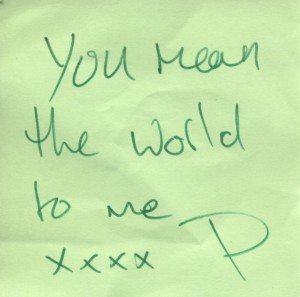 You mean
the world
to me
xxxx P